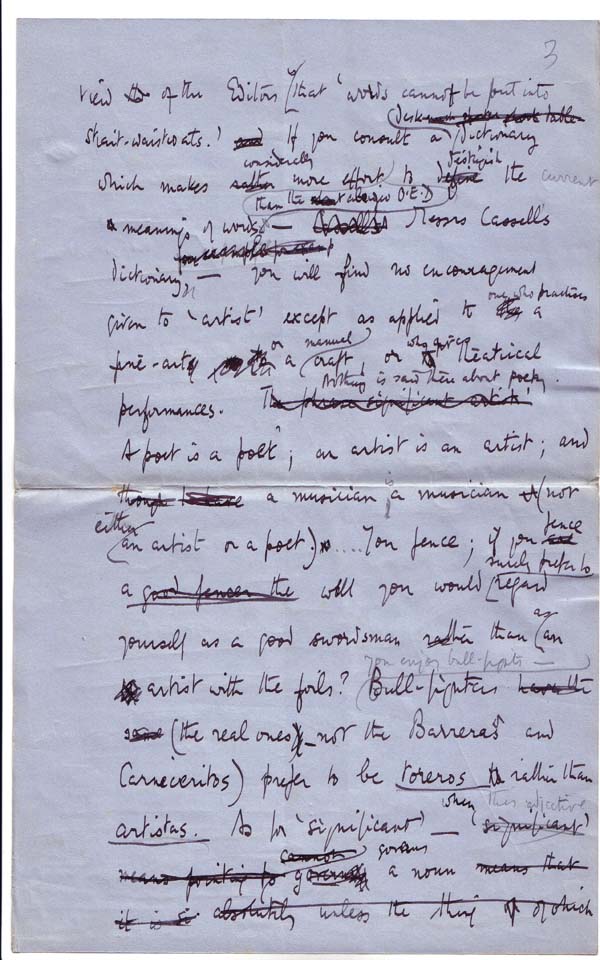 3
view of the Editors that 'words cannot be put into
strait-waistcoats.' If you consult a Dictionary
which makes considerably more effort to distinguish the current
than the abridged O.E.D
meanings of words — Messrs Cassell's
Dictionary — you will find no encouragement
given to 'artist' except as applied to one who practises a
fine-art or a manual craft, or who gives theatrical
performances. Nothing is said there about poetry.
The phrase significant artist
A poet is a poet; an artist is an artist; and
though a musician is a musician (not
either an artist or a poet.) .... You fence; if you fence
a good fencer the well you would surely prefer to regard
yourself as a good swordsman rather than as an
artist with the foils? you enjoy bull-fights — Bull-fighters have the
same (the real ones — not the Barreras and
Carniceritos) prefer to be toreros rather than
artistas. As for 'significant' — when this adjective 'significant'
cannot governs a noun means that
it is absolutely unless the thing of which